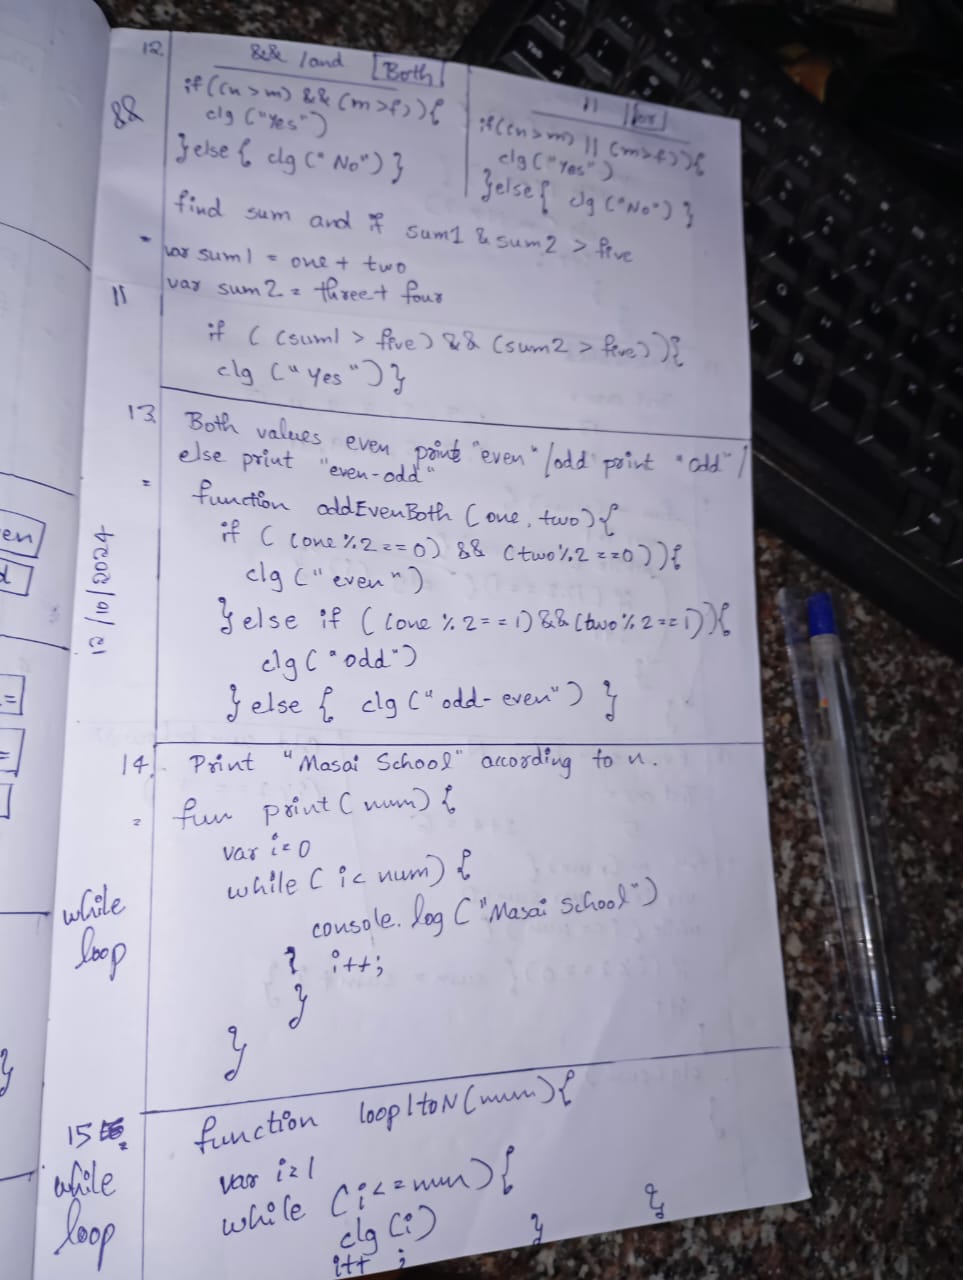 12.
&& /and [Both]
if ((n > m) && (m > f)) {
clg ("Yes")
} else { clg ("No") }
&&
|| [or]
if ((n > m) || (m > f)) {
clg ("Yes")
} else { clg ("No") }
find sum and if sum1 & sum2 > five
= var sum1 = one + two
var sum2 = three + four
||
if ( (sum1 > five) && (sum2 > five) ) {
clg ("Yes") }
13. Both values even print "even" / odd print "odd" /
else print "even-odd"
= function oddEvenBoth (one, two) {
if ( (one % 2 == 0) && (two % 2 == 0) ) {
clg ("even")
} else if ( (one % 2 == 1) && (two % 2 == 1) ) {
clg ("odd")
} else { clg ("odd-even") }
12/10/2024
14. Print "Masai School" according to n.
= fun print (num) {
var i = 0
while ( i < num) {
console.log ("Masai School")
} i++;
}
}
while
loop
15
function loop1toN (num) {
var i = 1
while (i <= num) {
clg (i) } }
i++ ;
while
loop
en